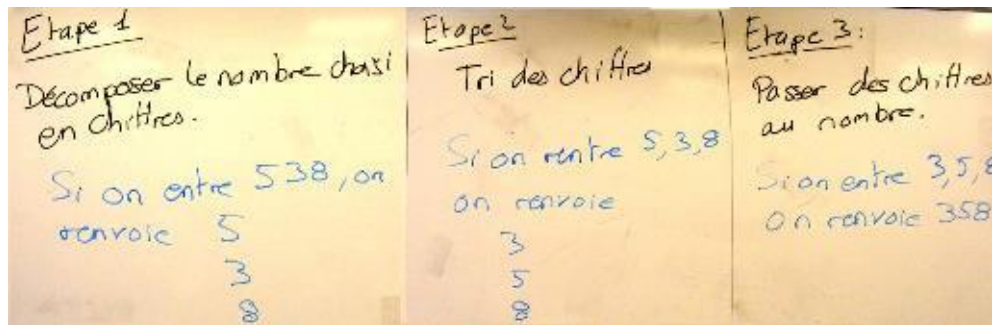 Etape 1
Décomposer le nombre choisi
en chiffres.
Si on entre 538, on
renvoie 5
3
8
Etape 2
Tri des chiffres
Si on rentre 5,3,8
on renvoie
3
5
8
Etape 3:
Passer des chiffres
au nombre.
Si on entre 3,5,8
on renvoie 358